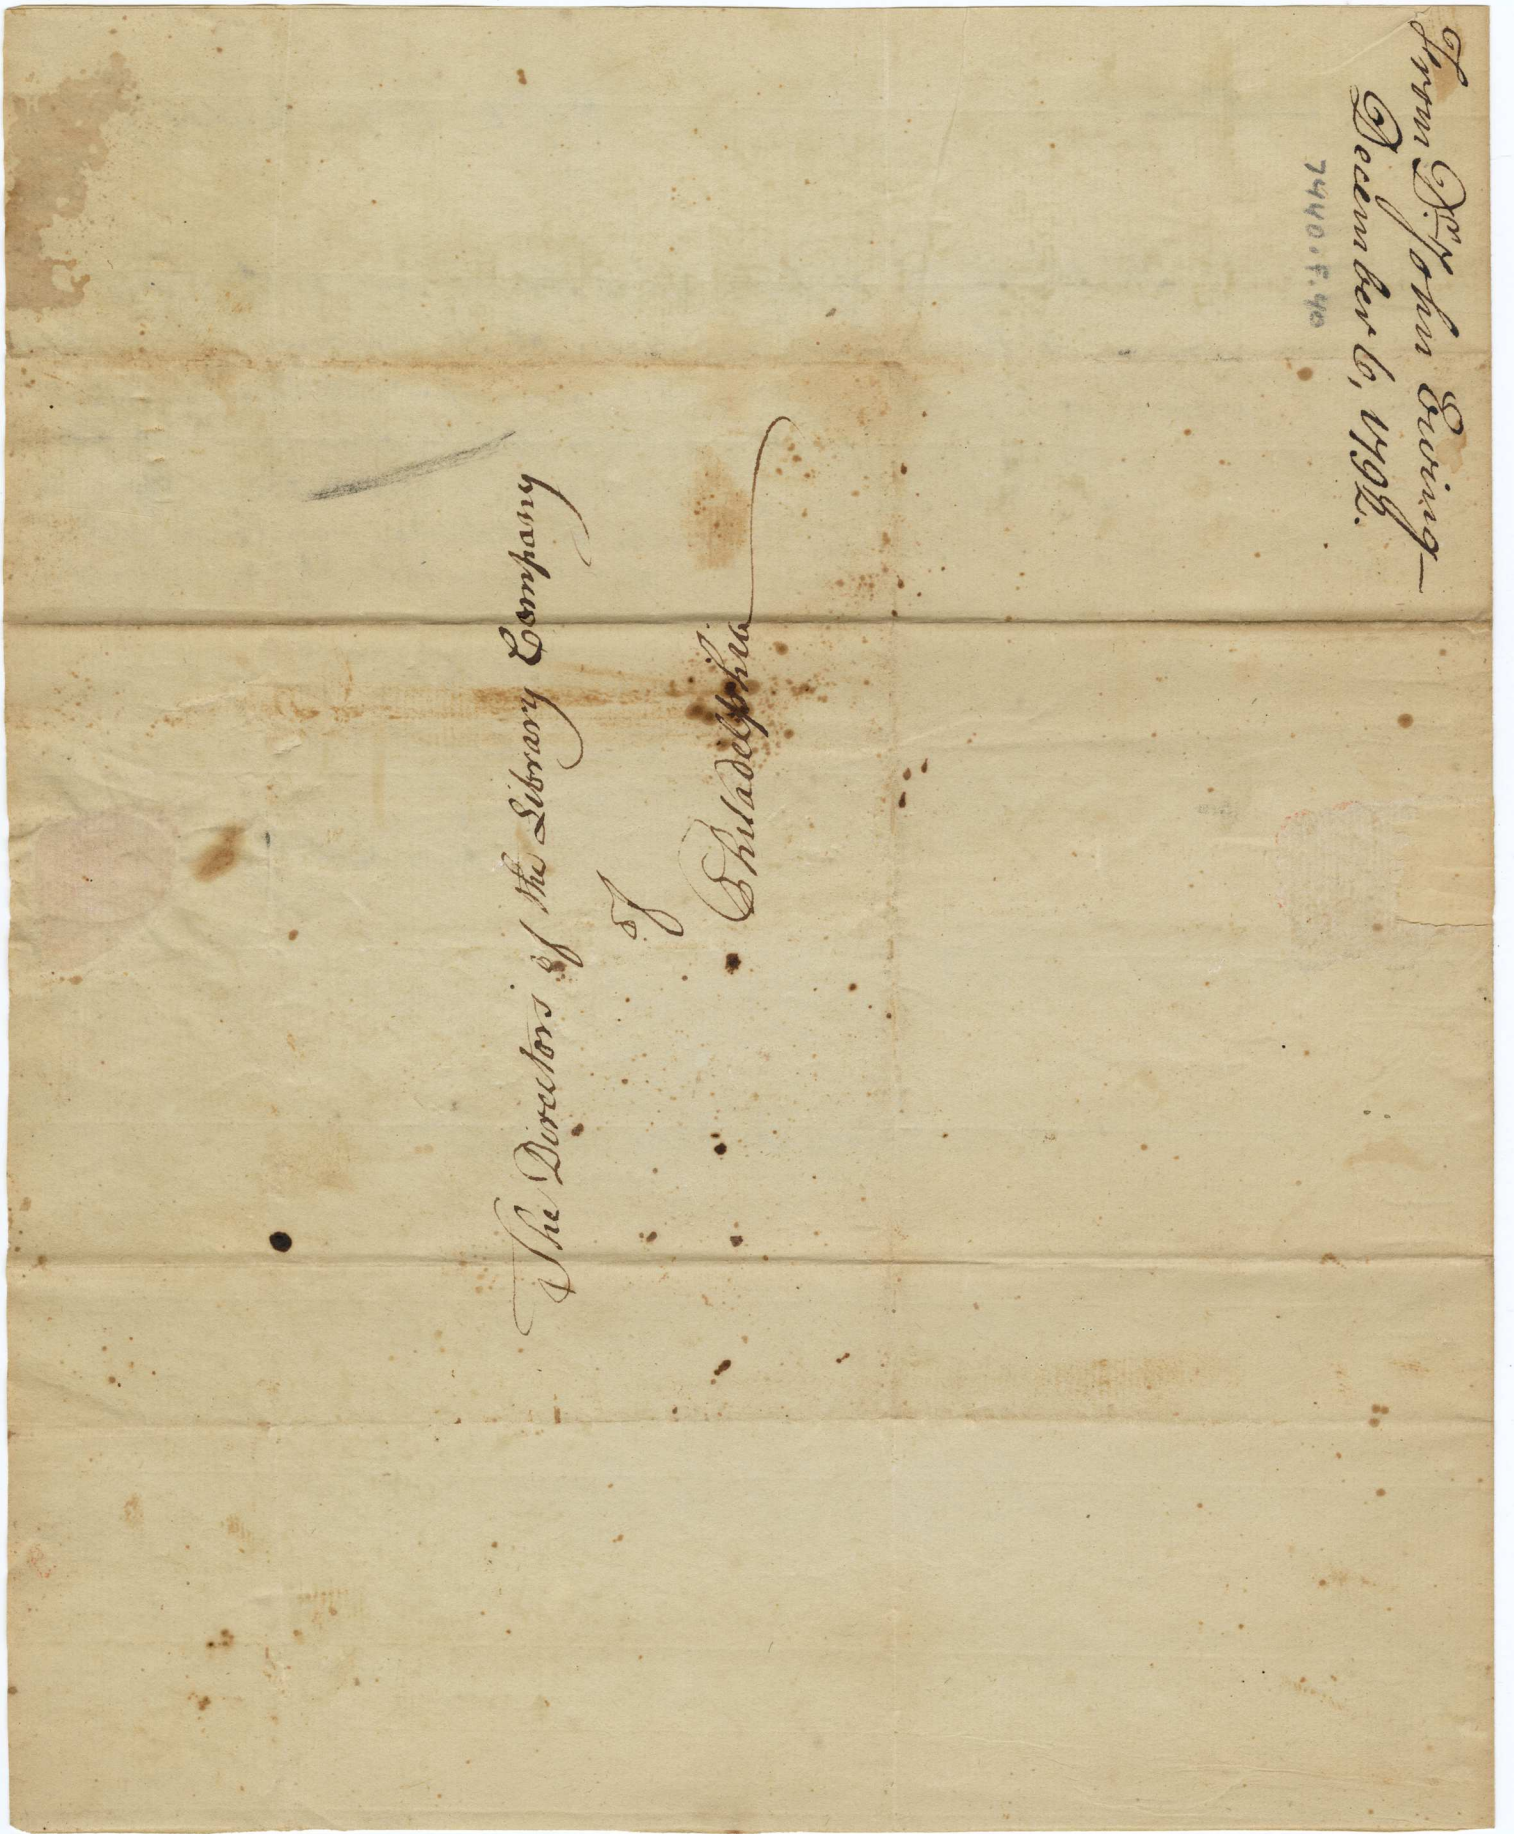 From Dr. John Ewing—
December 6, 1792.
7440.F.40
The Directors of the Library Company
of
Philadelphia